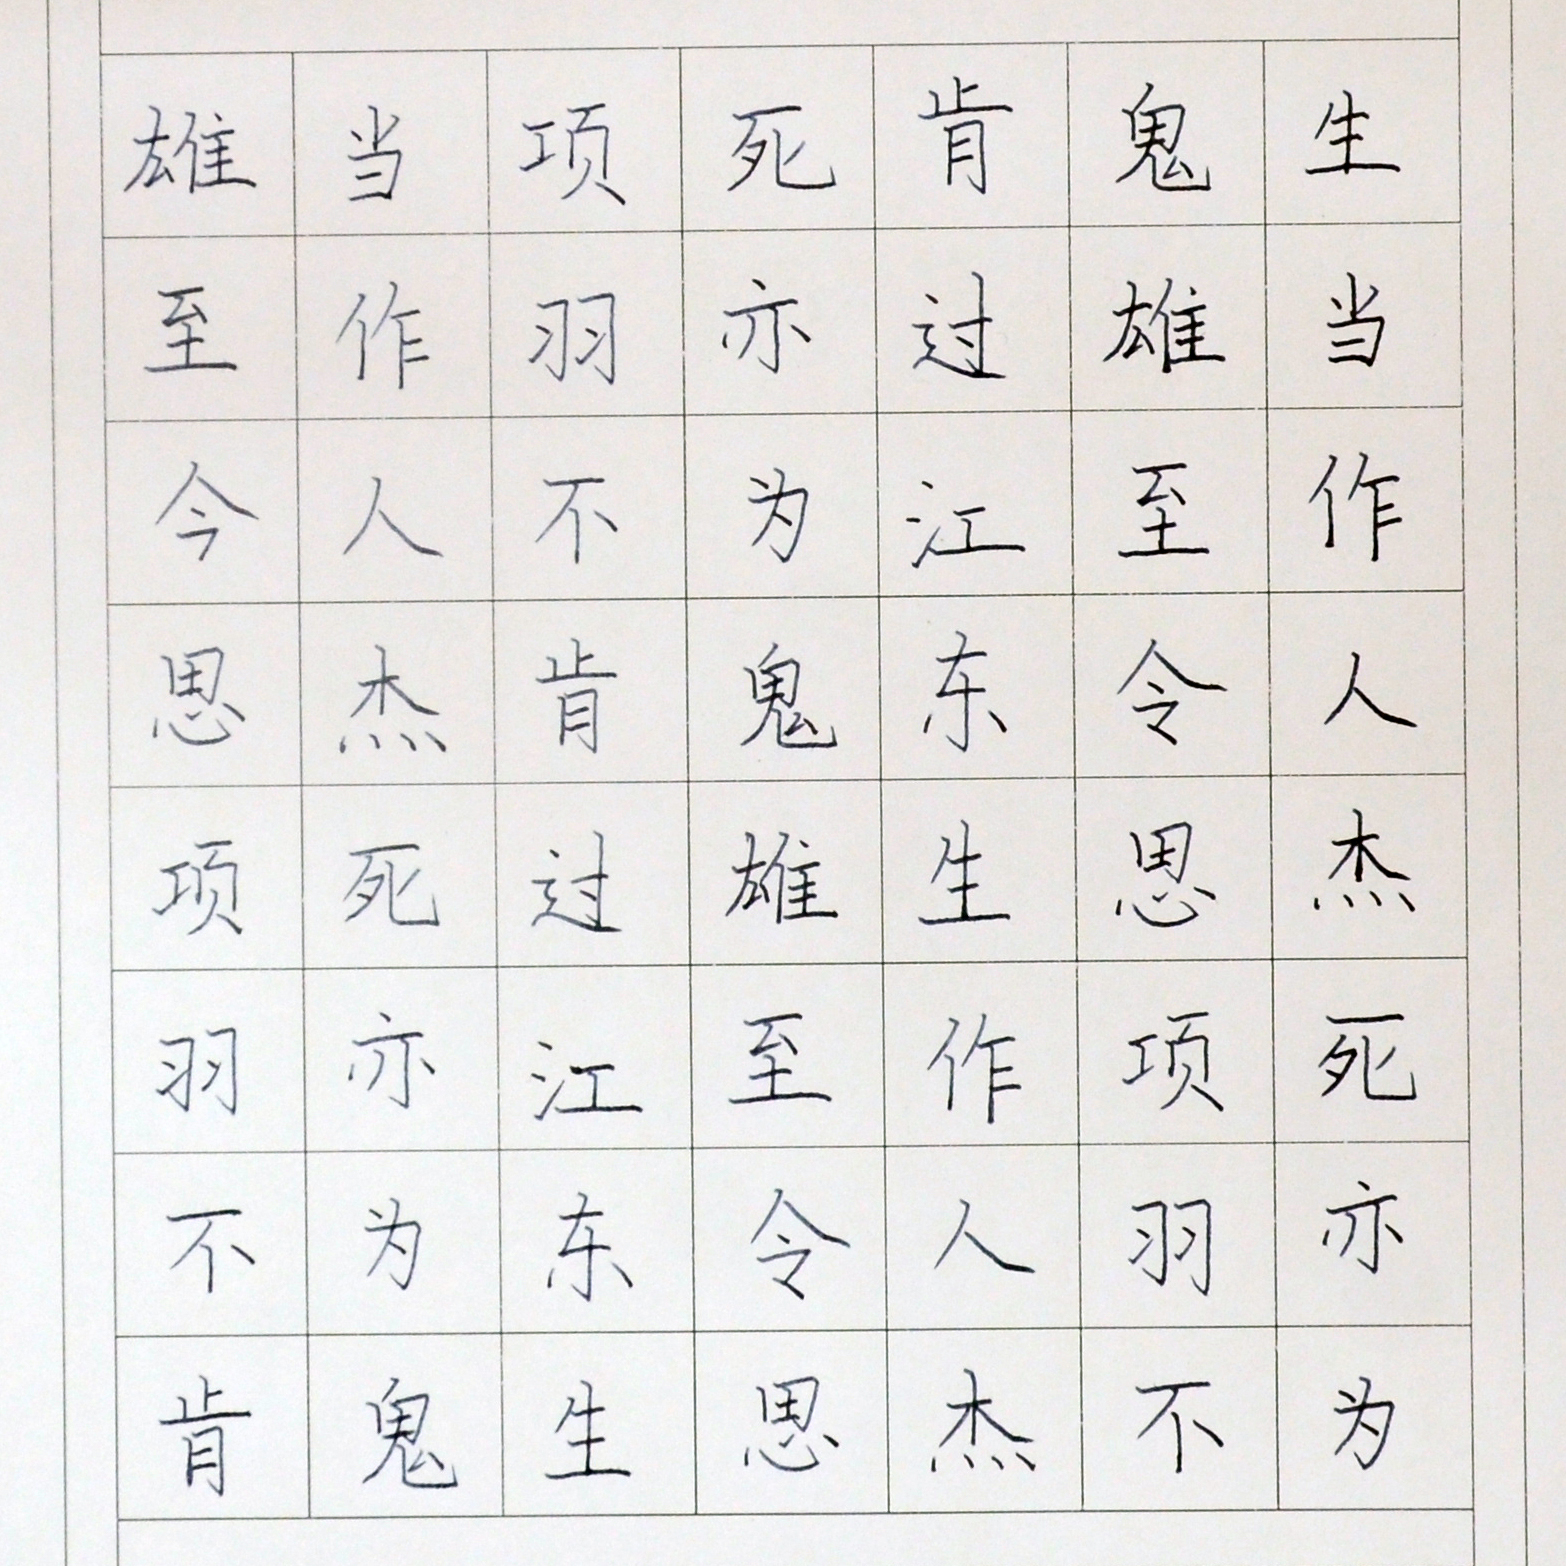 生当作人杰死亦为
鬼雄至令思项羽不
肯过江东生作人杰
死亦为鬼雄至令思
项羽不肯过江东生
当作人杰死亦为鬼
雄至今思项羽不肯